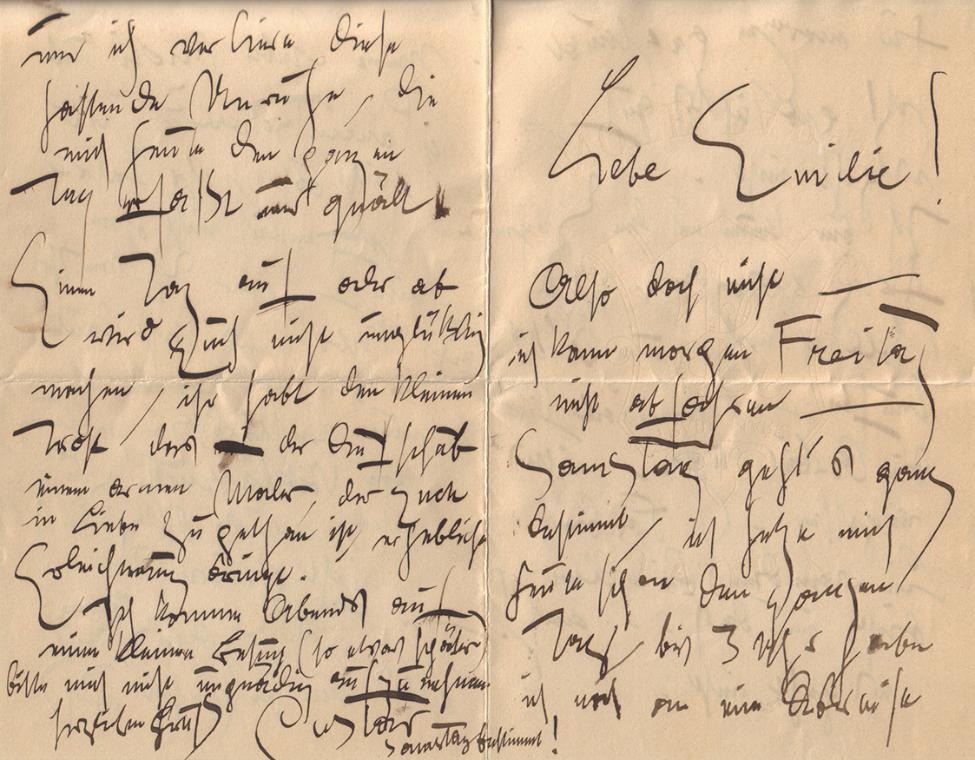 Liebe Emilie!
Also doch nicht —
ich kann morgen Freitag
nicht abfahren —
Samstag geht's ganz
bestimmt, ich hetze mich
heute schon den ganzen
Tag, bis 3 Uhr habe
ich noch an eine Überwiſe
und ich verliere diese
hastende Unruhe, die
mich heute den ganzen
Tag erfaßt und quält
Einen Tag auf oder ab
wird Euch nicht unglücklich
machen, ihr habt den kleinen
Trost, dass der Aufschub
einem armen Maler, der Euch
in Liebe zugethan ist, erhebliche
Erleichterung bringt.
Ich komme Abends auf
einen kleinen Besuch (so etwas später)
bitte mich nicht ungnädig aufzunehmen
herzlichen Gruß Gustav
Samstag bestimmt!